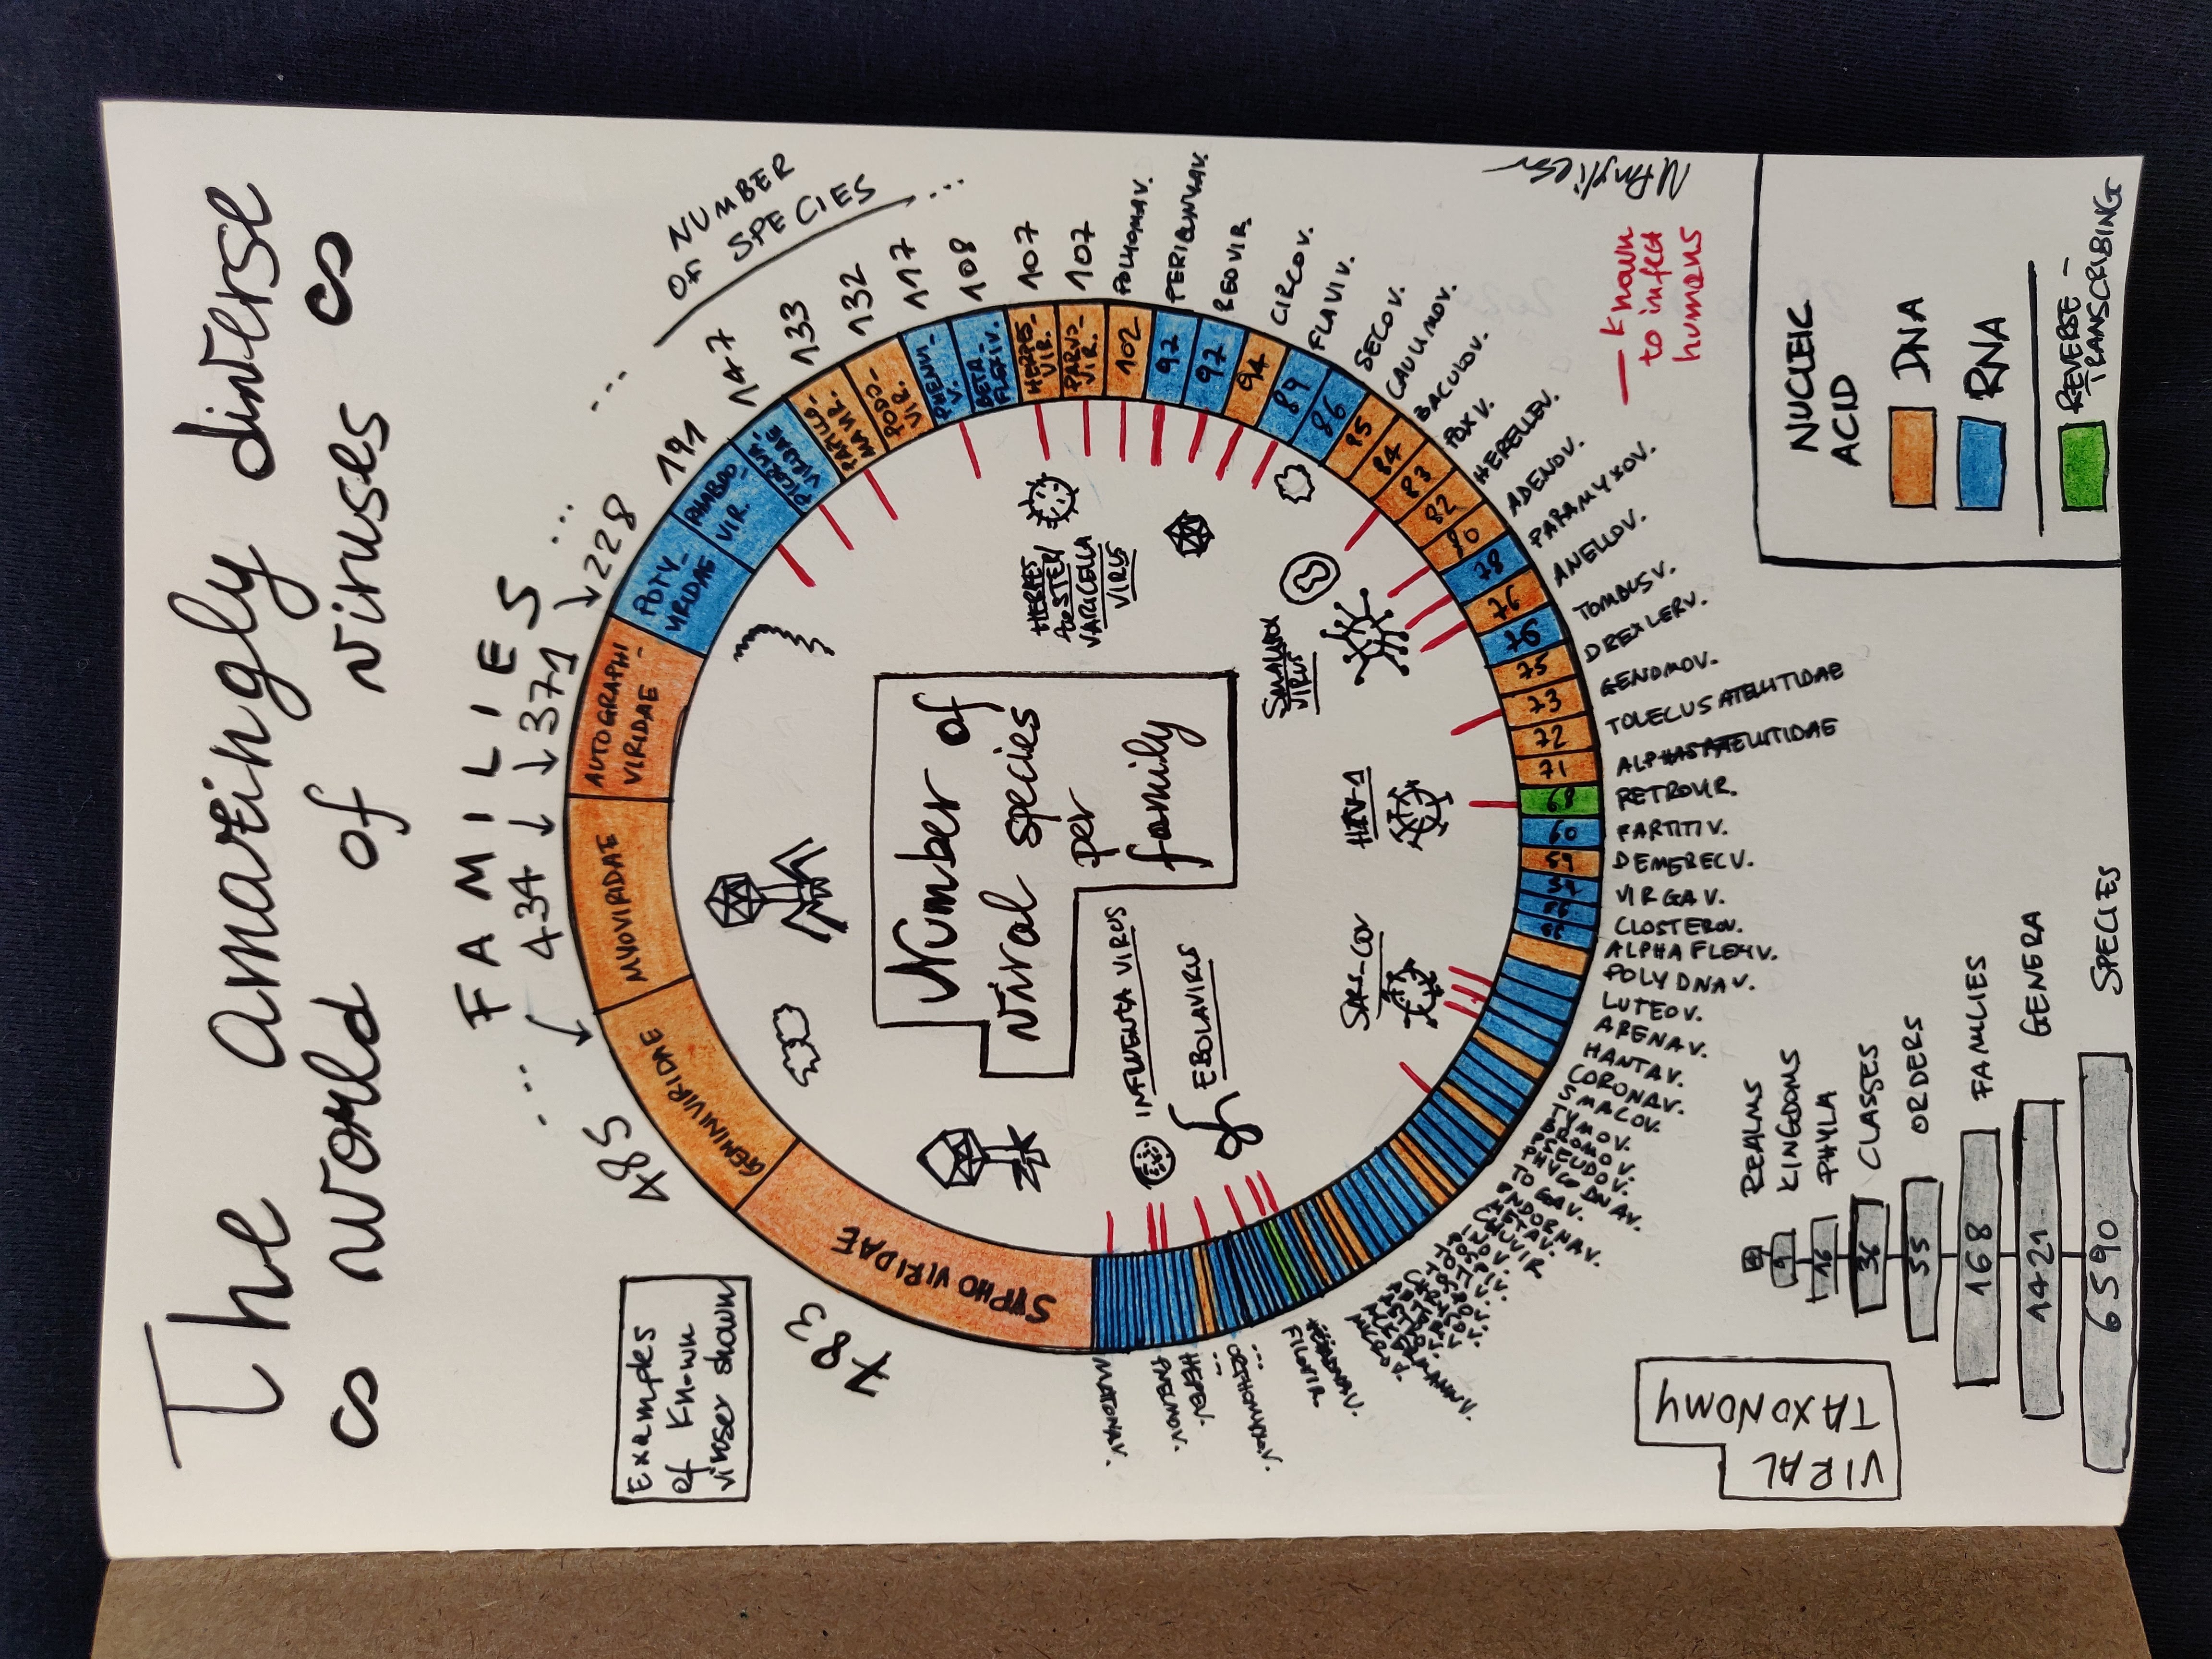 The amazingly diverse
world of viruses
FAMILIES
NUMBER
OF SPECIES
...
...
...
...
783
485
434
371
228
191
147
133
132
117
108
107
107
SYPHOVIRIDAE
GEMINIVIRIDAE
MYOVIRIDAE
AUTOGRAPHI-
VIRIDAE
POTY-
VIRIDAE
RHABDO-
VIR.
PICORNA-
VIRIDAE
PAPILLO-
MAVIR.
PODO-
VIR.
PHENUI-
V.
BETA-
FLEXIV.
HERPES-
VIR.
PARVO-
VIR.
102
97
97
94
89
86
85
84
83
82
80
78
76
76
75
73
72
71
68
60
59
57
56
56
POLYOMAV.
REOVIR.
CIRCOV.
FLAVIV.
SECOV.
CAULIMOV.
BACULOV.
POXV.
HERELLEV.
ADENOV.
PARAMYXOV.
ANELLOV.
TOMBUSV.
DREXLERV.
GENOMOV.
TOLECUSATELLITIDAE
ALPHASATELLITIDAE
RETROVIR.
PARTITIV.
DEMERECV.
VIRGAV.
CLOSTEROV.
ALPHAFLEXIV.
POLYDNAV.
LUTEOV.
ARENAV.
HANTAV.
CORONAV.
SMACOV.
TYMOV.
BROMOV.
PSEUDOV.
PHYCODNAV.
TOGAV.
ENDORNAV.
METAV.
CHUVIR
INOV.
TOSPOV.
FILOVIR.
...
HEPEV.
PNEUMOV.
MATONAV.
Number of
viral species
per
family
HERPES
ZOSTER/
VARICELLA
VIRUS
SMALLPOX
VIRUS
HIV-1
SARS-COV
EBOLAVIRUS
INFLUENZA VIRUS
Examples
of known
viruser shown
— known
to infect
humans
NUCLEIC
ACID
DNA
RNA
REVERSE-
TRANSCRIBING
VIRAL
TAXONOMY
REALMS
9 KINGDOMS
16 PHYLA
36 CLASSES
55 ORDERS
168 FAMILIES
1421 GENERA
6590 SPECIES